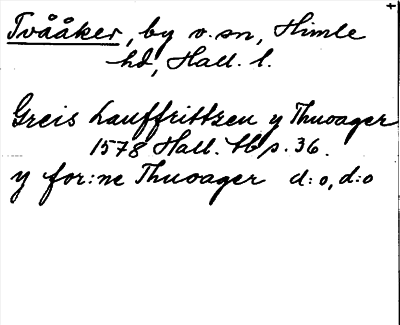 Tvååker, by o. sn, Himle
hd, Hall. l.
Greis Lauffrittzen y Thuoager
1578 Hall. tb s. 36.
y for:ne Thuoager d:o, d:o